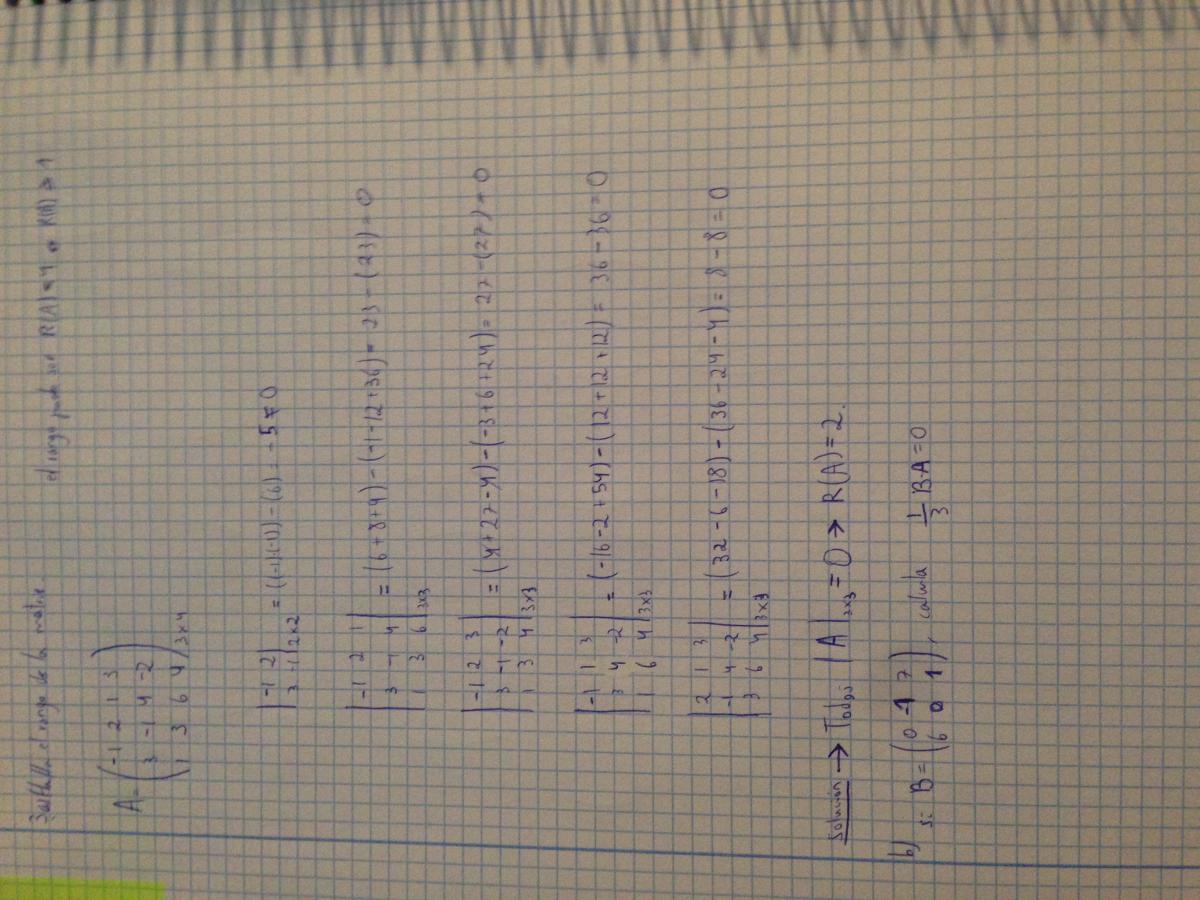 3a) Halla el rango de la matriz. el rango puede ser R(A)=4 o R(A)≥1
A = (-1 2 1 3
3 -1 4 -2
1 3 6 4) 3x4
|-1 2
3 -1| 2x2 = ((-1)·(-1))-(6) = -5≠0
|-1 2 1
3 -1 4
1 3 6| 3x3 = (6+8+9)-(-1-12+36) = 23-(23)=0
|-1 2 3
3 -1 -2
1 3 4| 3x3 = (4+27-4)-(-3+6+24) = 27-(27)=0
|-1 1 3
3 4 -2
1 6 4| 3x3 = (-16-2+54)-(12+12+12) = 36-36=0
|2 1 3
-1 4 -2
3 6 4| 3x3 = (32-6-18)-(36-24-4) = 8-8=0
Solución → Todos |A| 3x3 = 0 → R(A)=2.
b) si B = (0 -1 7
6 0 1), calcula 1/3 B·A=0